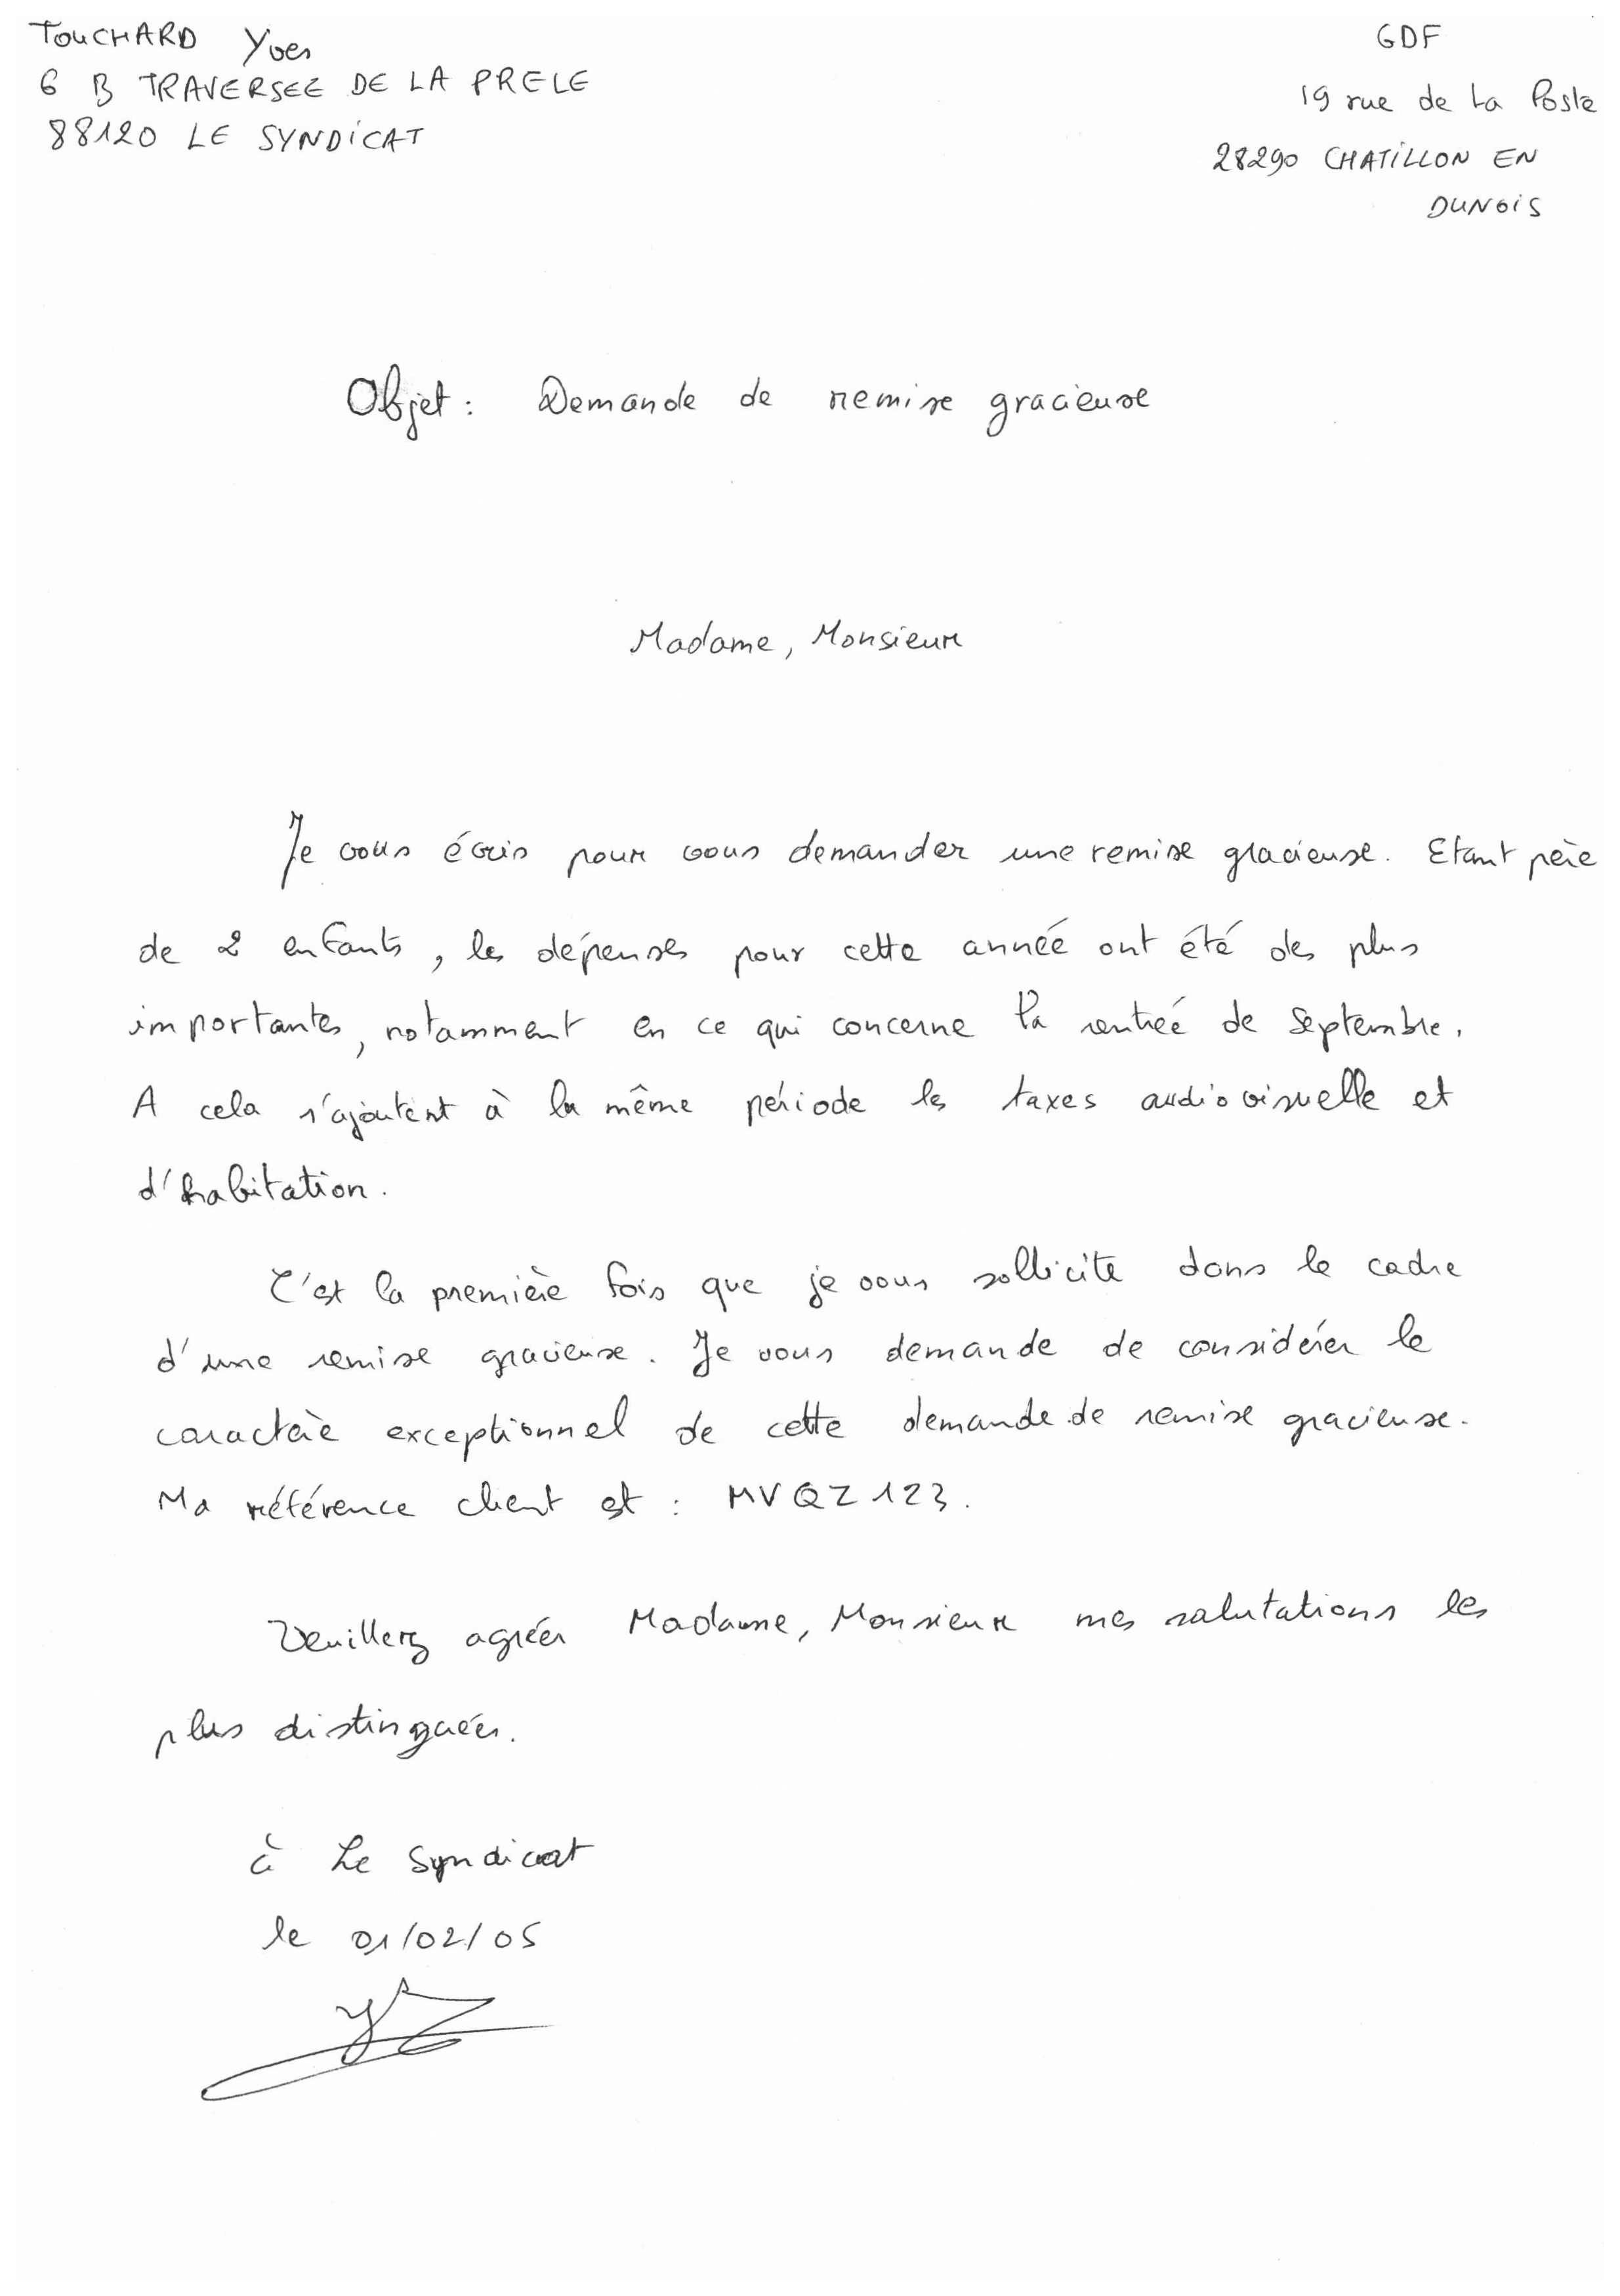 TOUCHARD Yves
6 B TRAVERSEE DE LA PRELE
88120 LE SYNDICAT
GDF
19 rue de La Poste
28290 CHATILLON EN
DUNOIS
Objet : Demande de remise gracieuse
Madame, Monsieur
Je vous écris pour vous demander une remise gracieuse. Etant père
de 2 enfants, les dépenses pour cette année ont été des plus
importantes, notamment en ce qui concerne la rentrée de Septembre.
A cela s'ajoutent à la même période les taxes audiovisuelle et
d'habitation.
C'est la première fois que je vous sollicite dans le cadre
d'une remise gracieuse. Je vous demande de considérer le
caractère exceptionnel de cette demande de remise gracieuse.
Ma référence client est : MVQZ123.
Veuillez agréer Madame, Monsieur mes salutations les
plus distinguées.
à Le Syndicat
le 01/02/05